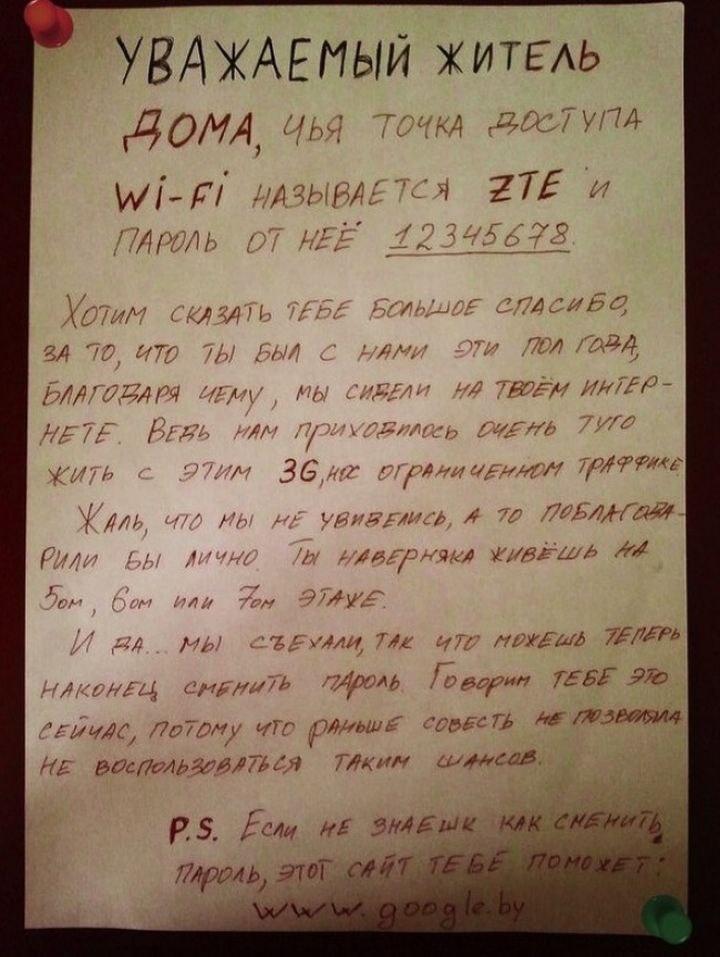 УВАЖАЕМЫЙ ЖИТЕЛЬ
ДОМА, ЧЬЯ ТОЧКА ДОСТУПА
Wi-Fi НАЗЫВАЕТСЯ ZTE И
ПАРОЛЬ ОТ НЕЁ 12345678.
Хотим сказать тебе большое спасибо,
за то, что ты был с нами эти пол года,
благодаря чему, мы сидели на твоём интер-
нете. Ведь нам приходилось очень туго
жить с этим 3G, на ограниченном траффике.
Жаль, что мы не увиделись, а то поблагода-
рили бы лично. Ты наверняка живёшь на
5ом, 6ом или 7ом этаже.
И да... мы съехали, так что можешь теперь
наконец сменить пароль. Говорим тебе это
сейчас, потому что раньше совесть не позволяла
не воспользоваться таким шансов.
P.S. Если не знаешк как сменить
пароль, этот сайт тебе поможет:
www.google.by